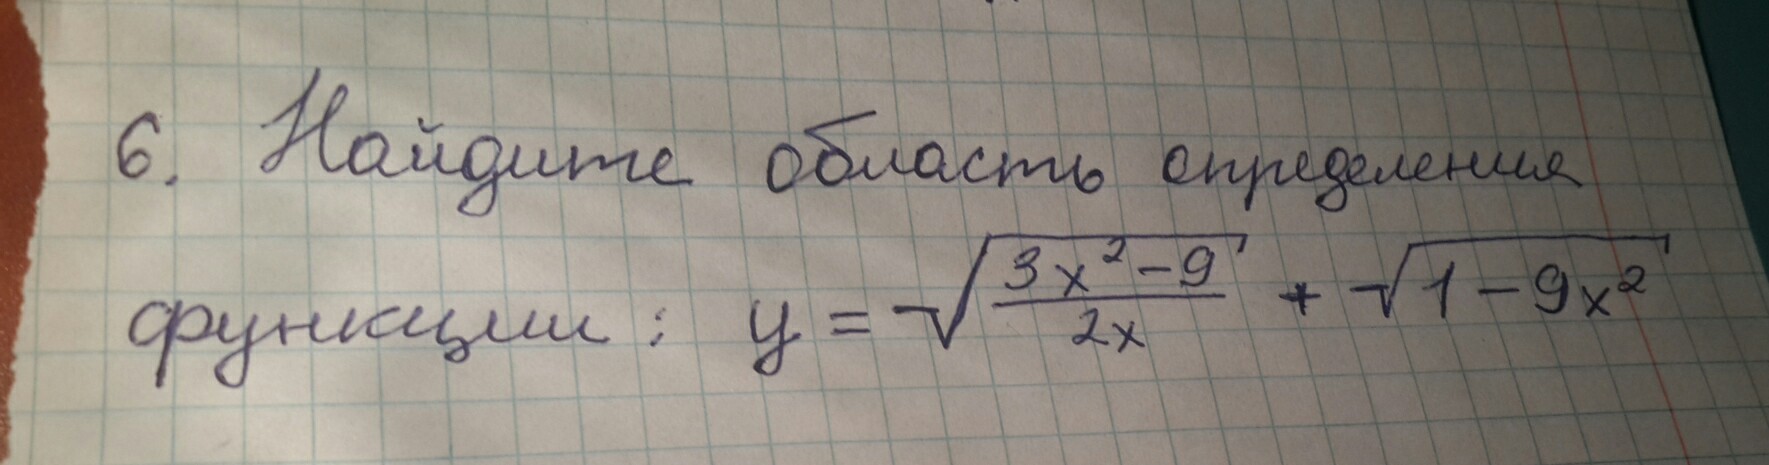 6. Найдите область определения
функции: y = √((3x² − 9)/(2x)) + √(1 − 9x²)